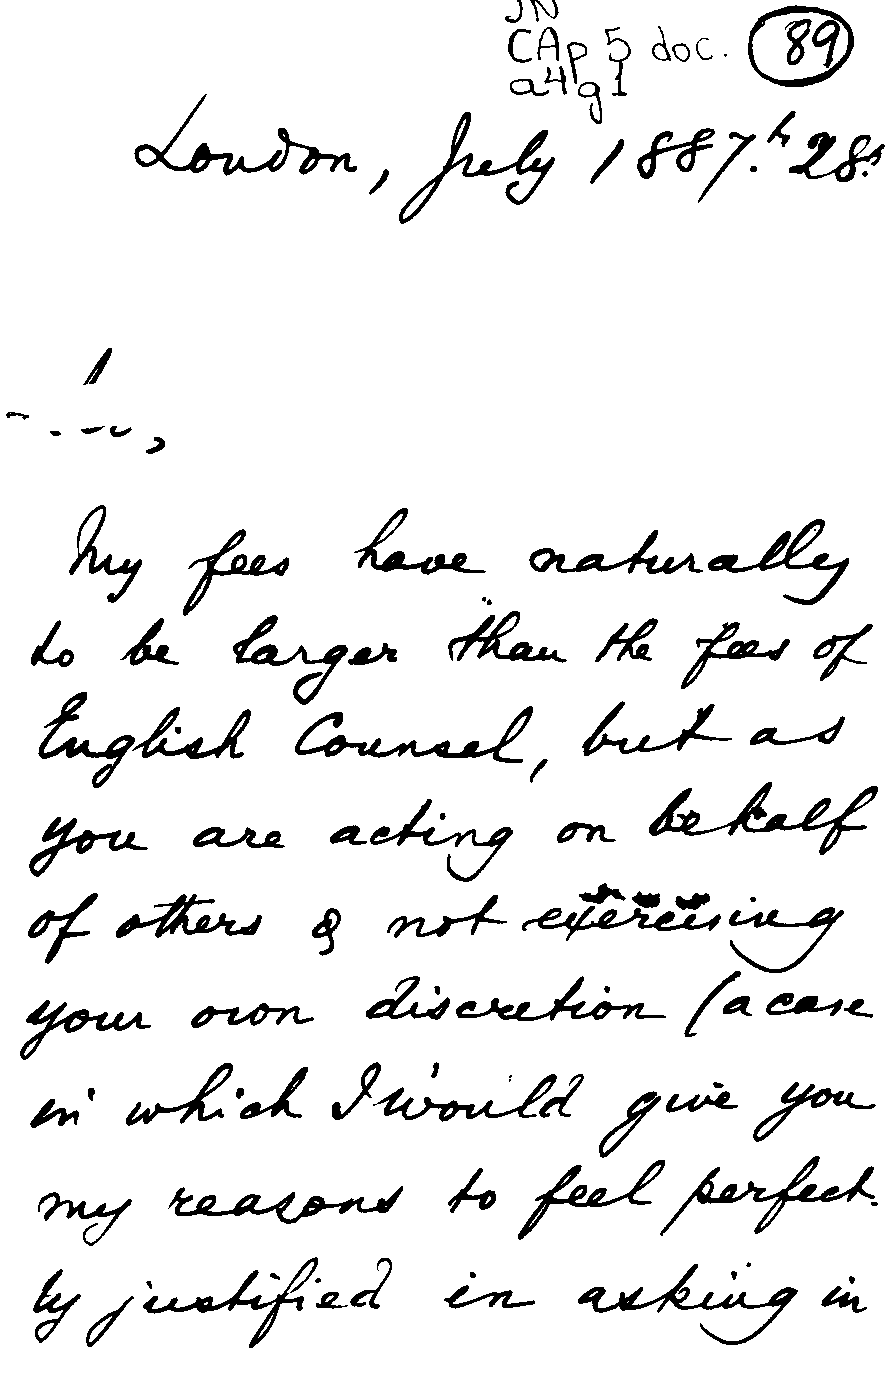 JN
CAp 5 doc. 89
a4 g1
London, July 1887.
My fees have naturally
to be larger than the fees of
English Counsel, but as
you are acting on behalf
of others & not exercising
your own discretion (a case
in which I would give you
my reasons to feel perfect-
ly justified in asking in